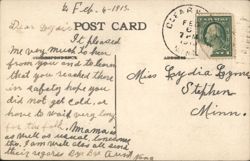 Feb. 6-1913.
POST CARD
Dear Lydia:
It pleased
me very much to hear
from you and to learn
that you reached there
in safety hope you
did not get cold, or
have to wait very long
Mama is
as well as usual,
too, I am well also all send
their regards
Miss Lydia
Stephen
Minn.